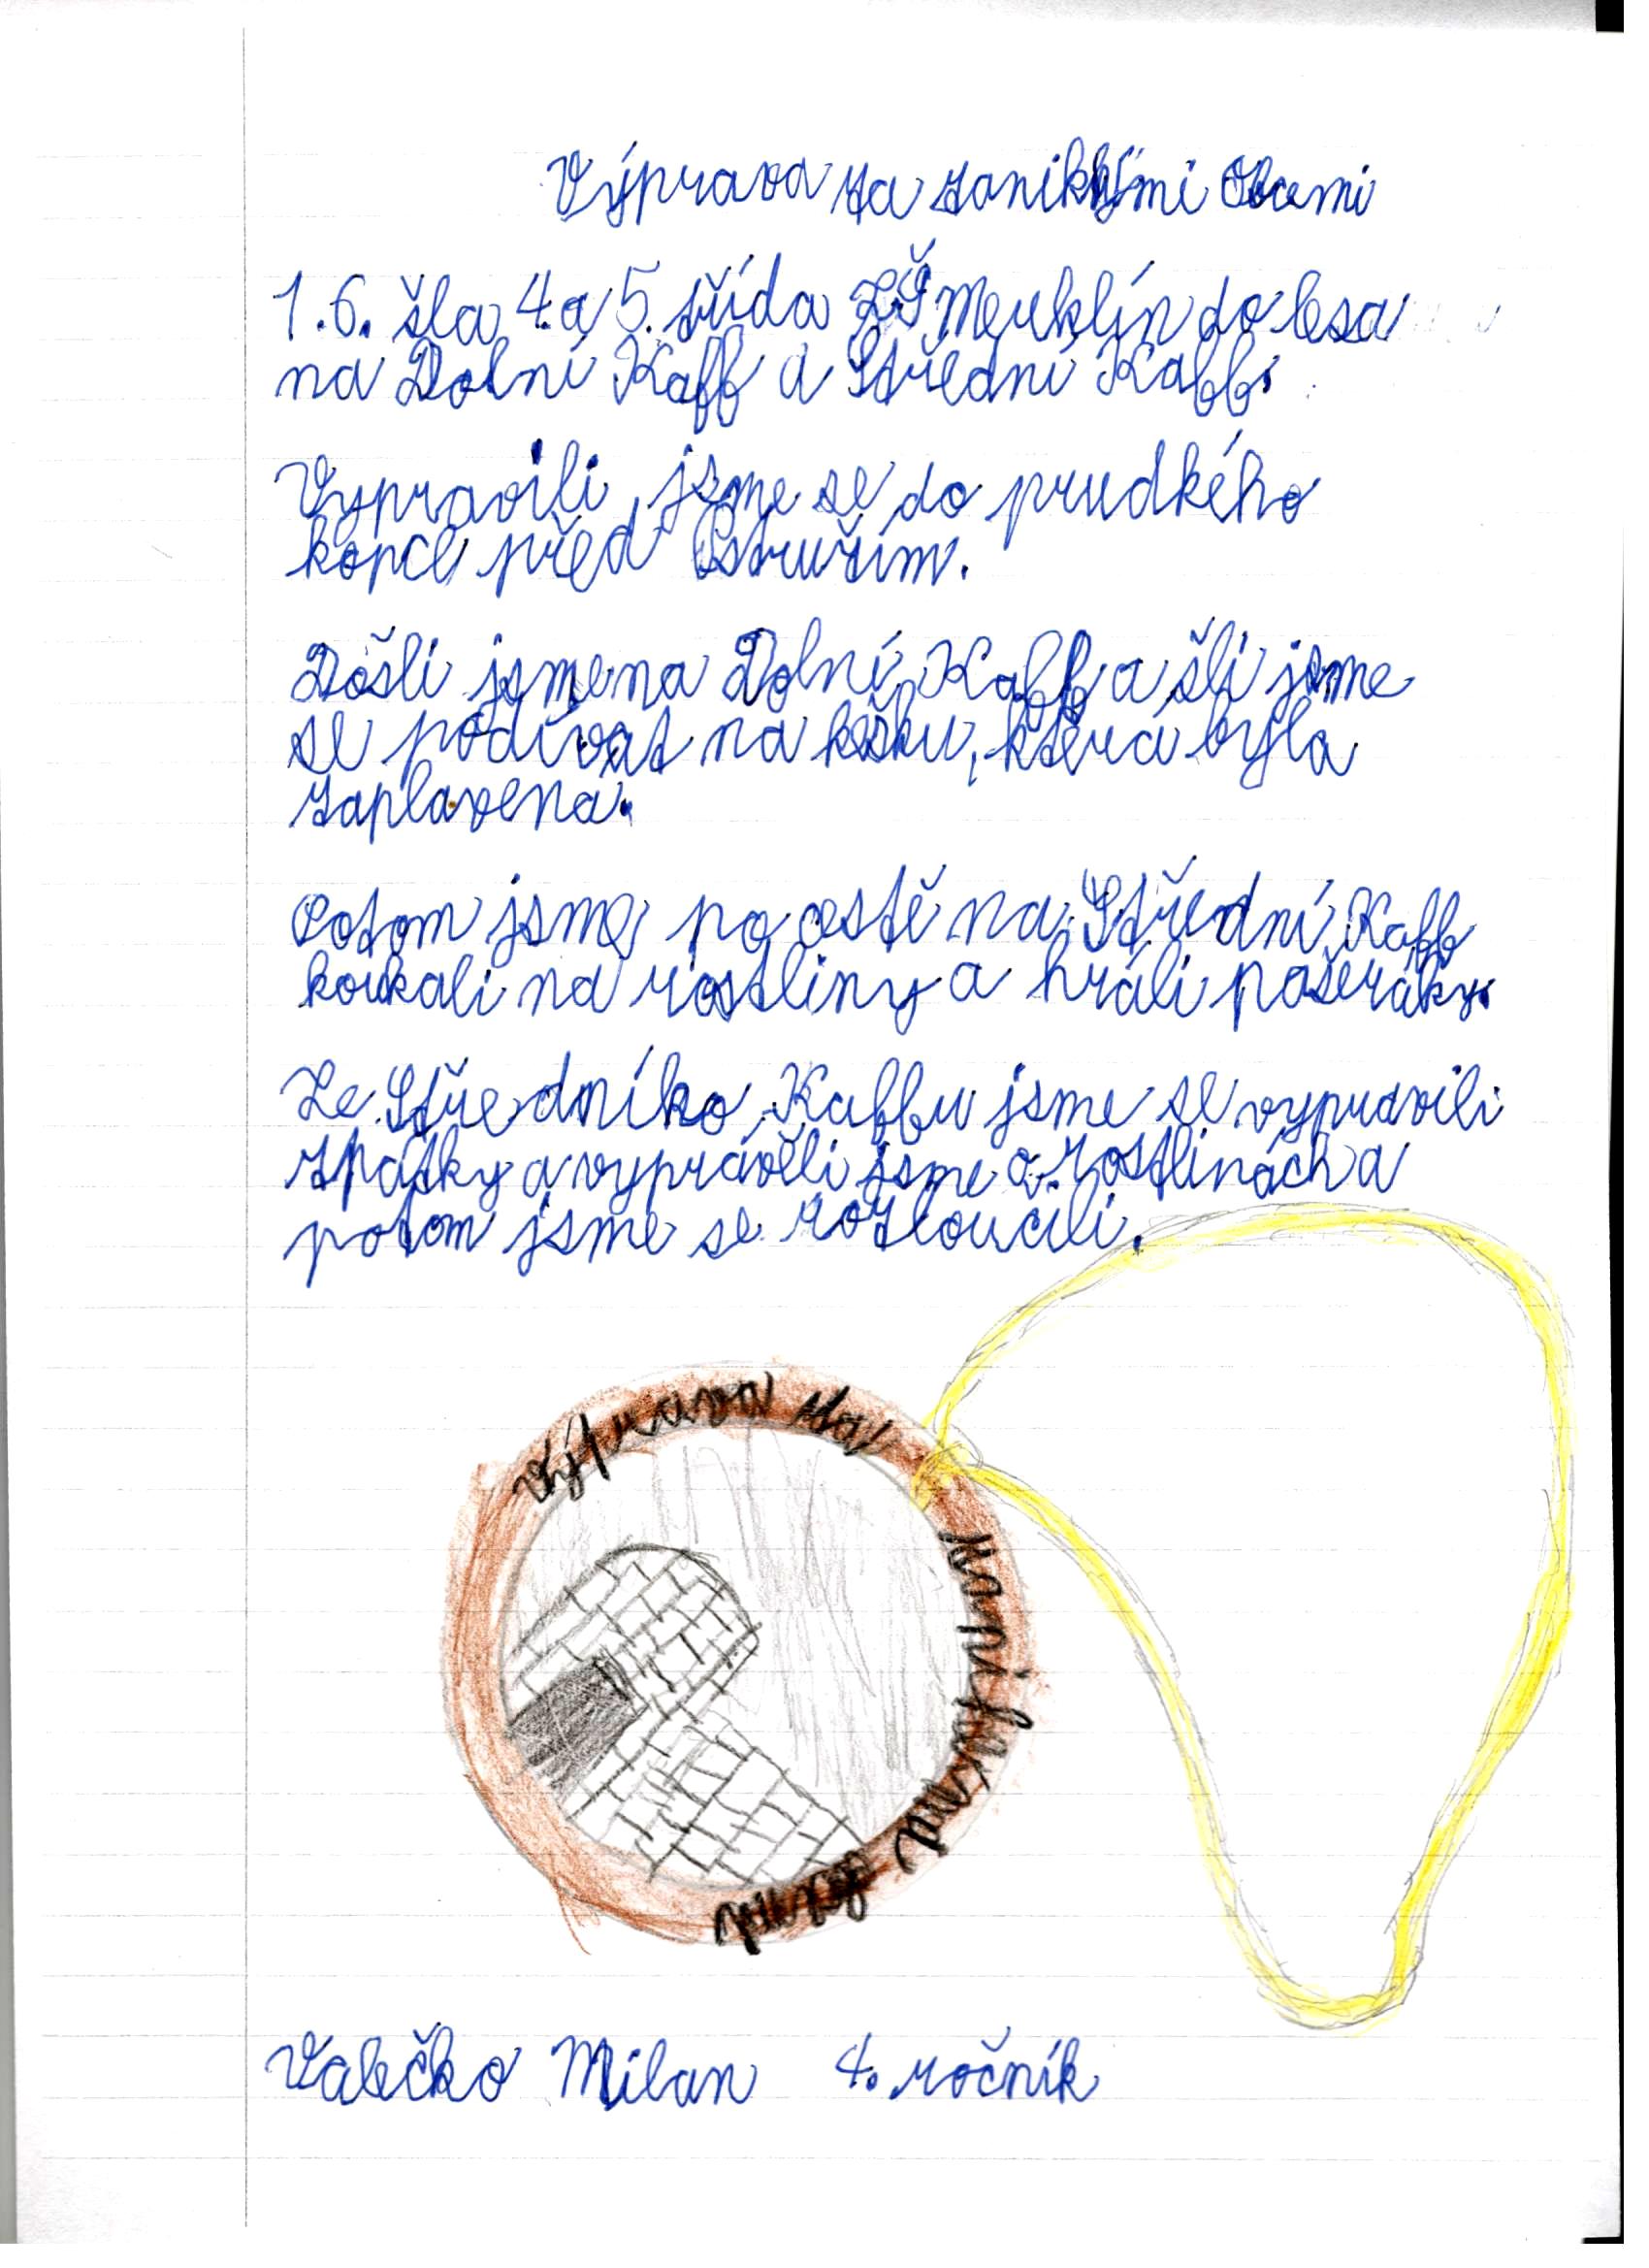 Výprava za zaniklými Obcemi
1.6. šla 4. a 5. třída ZŠ Merklín do lesa
na Dolní Kaff a Střední Kaff.
Vypravili jsme se do prudkého
kopce před Ostružím.
Došli jsme na Dolní Kaff a šli jsme
se podívat na kešku, která byla
zaplavena.
Potom jsme po cestě na Střední Kaff
koukali na rostliny a hráli pašeráky.
Ze Středního Kaffu jsme se vypravili
zpátky a vyprávěli jsme o rostlinách a
potom jsme se rozloučili.
Výprava
Valečko Milan 4. ročník